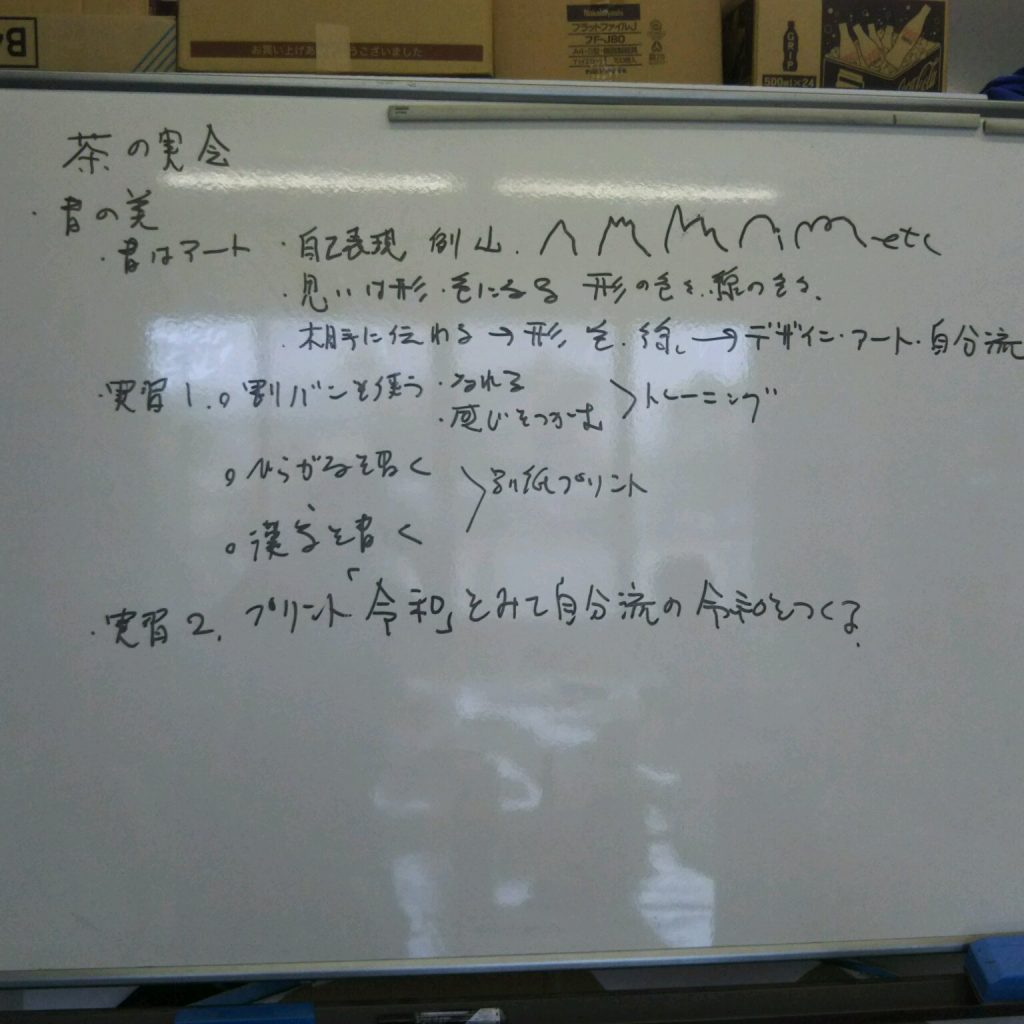 B4
お買い上げありがとうございました
Nakabayashi
フラットファイルJ
FF-J80
GRIP
500ml×24
Coca-Cola
茶の実会
・書の美
・書はアート ・自己表現 例 山. etc
・思いは形・色になる 形の色々.線の色々.
・相手に伝わる→形, 色. 線, →デザイン・アート・自分流
・実習1.。割バシを使う ・なれる
・感じをつかむ
トレーニング
。ひらがなを書く
別紙プリント
。漢字を書く
・実習2. プリント「令和」をみて自分流の令和をつくる.